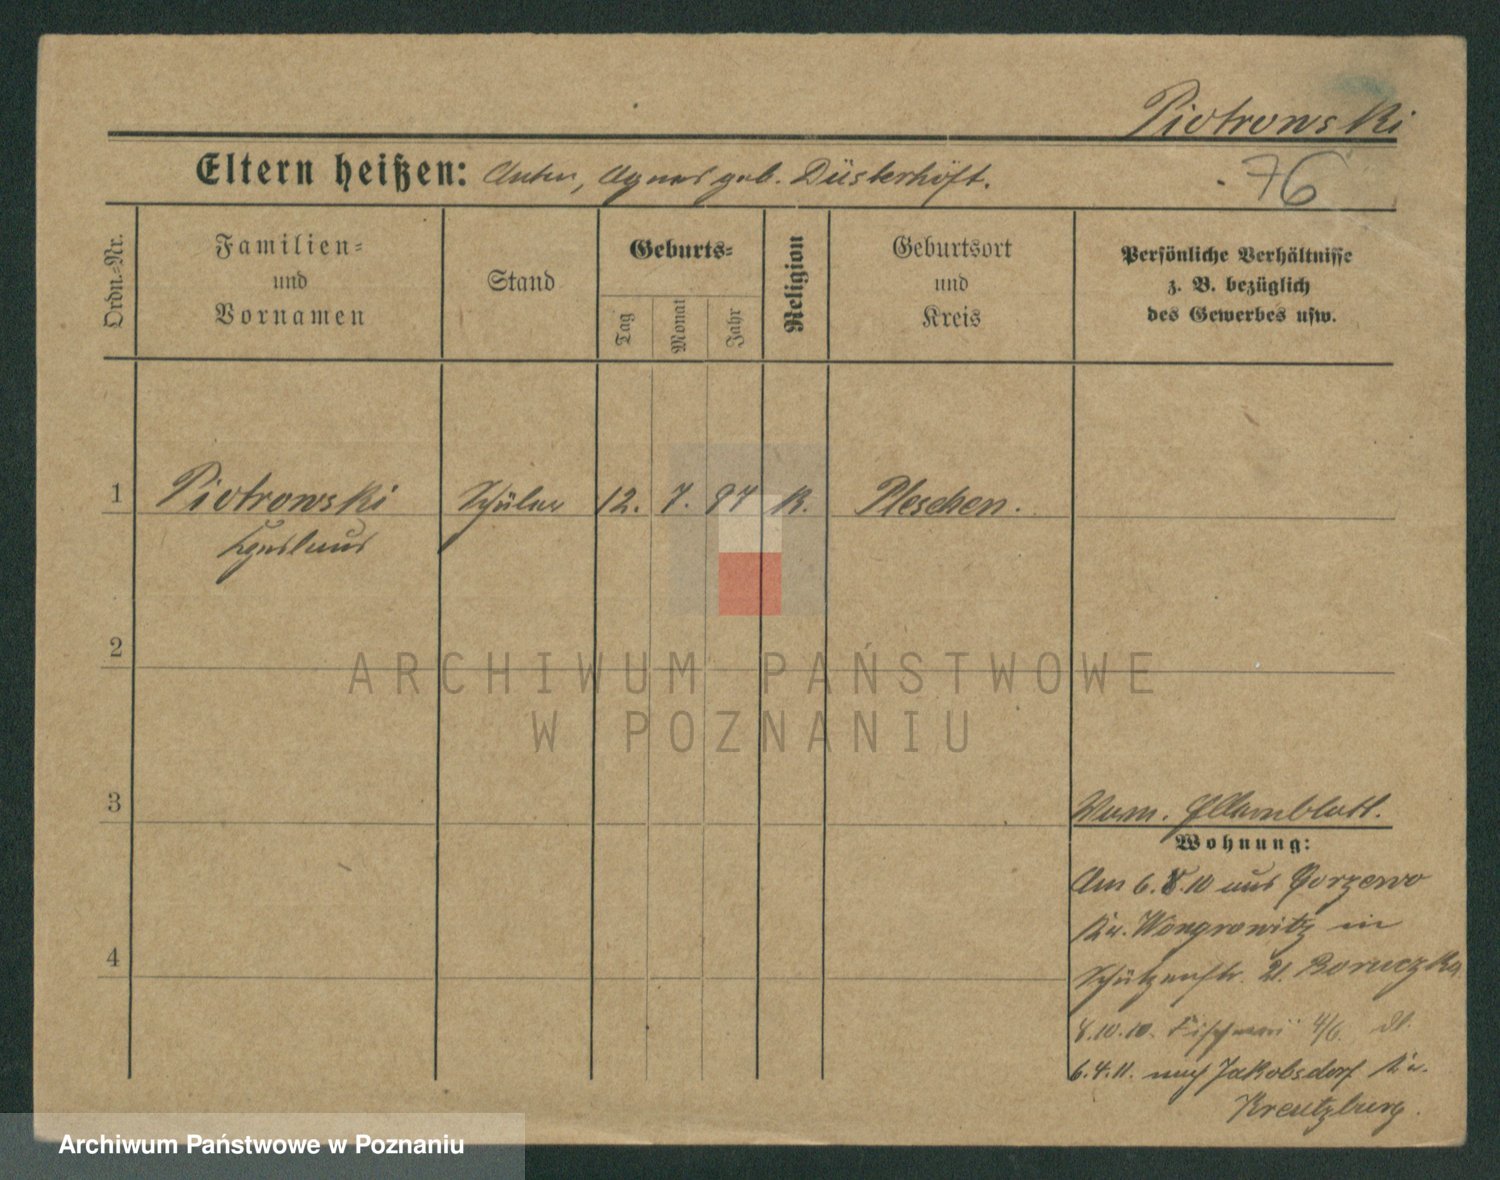 Piotrowski
Eltern heißen: Anton, Agnes geb. Düsterhöft.
76
Ordn.=Nr.
Familien=
und
Vornamen
Stand
Geburts=
Tag
Monat
Jahr
Religion
Geburtsort
und
Kreis
Persönliche Verhältnisse
z. B. bezüglich
des Gewerbes usw.
1 Piotrowski Schüler 12. 7. 97 K. Pleschen.
2
ARCHIWUM PAŃSTWOWE
W POZNANIU
3
Wohnung:
Am 6. 8. 10 aus Gorzewo
Kr. Wongrowitz in
4
Schützenstr. 21. Boruczka
8.10.10. 4/6.
6.4.11. nach Jakobsdorf Kr.
Kreutzburg.
Archiwum Państwowe w Poznaniu